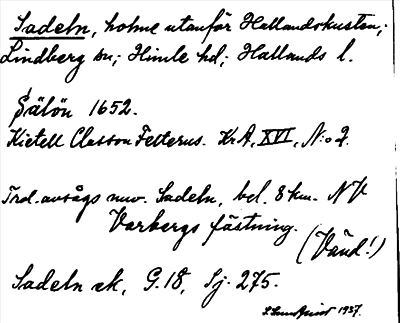 Sadeln, holme utanför Hallandskusten;
Lindberg sn; Himle hd; Hallands l.
Sälön 1652.
Kietell Classon Felterus. KrA, XVI, N:o 2.
Trol. avsågs nuv. Sadeln, bel. 8 km. NV
Varbergs fästning.
(Vänd!)
Sadeln ek, G.18, Sj. 275.
1937.